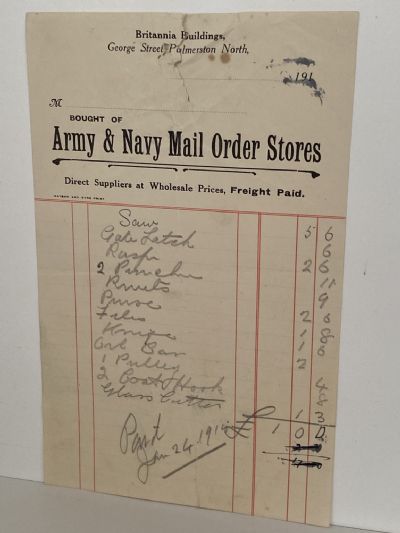 Britannia Buildings,
George Street, Palmerston North,
191
M
BOUGHT OF
Army & Navy Mail Order Stores
Direct Suppliers at Wholesale Prices, Freight Paid.
Saw 5 6
Gate Latch 6
Rasp 2 6
2 Punches 11
Rivets 9
2 6
Files 1 8
1 6
Oil Can 2
1 Pulley
2 Coat Hook 4
Glass Cutter 1 3
£ 1 0
Paid
Jan 24 191